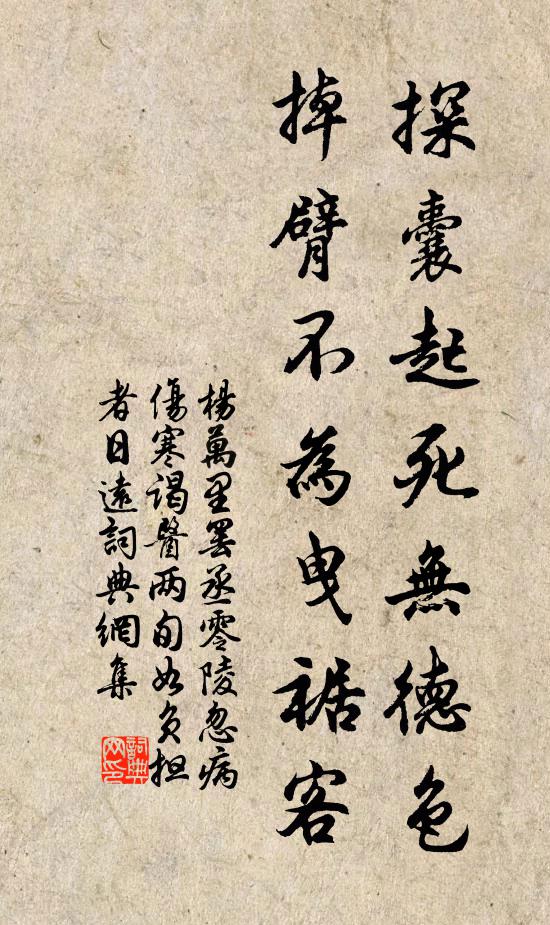 探囊起死無德色
掉臂不為曳裾客
楊萬里罷丞零陵忽病
傷寒謁醫兩旬如負担
者日遠詞典網集
詞典
网印